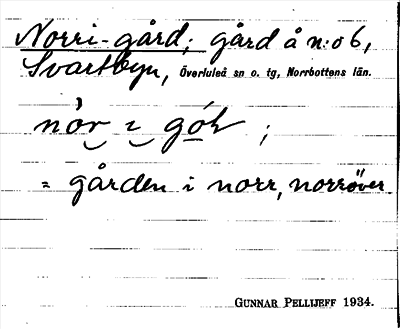 Norri-gård; gård å n:o 6,
Svartbyn, Överluleå sn o. tg, Norrbottens län.
nòr i gó̱ḷ ;
= gården i norr, norröver
GUNNAR PELLIJEFF 1934.